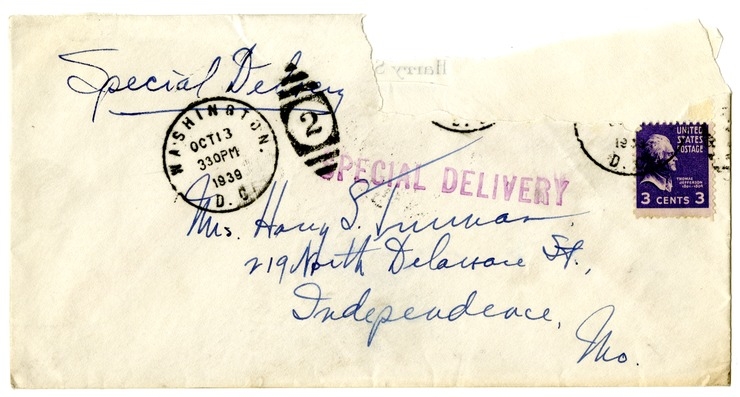 Harry S
Special Delivery
WASHINGTON,
OCT 13
330PM
1939
D. C.
2
D.
UNITED
STATES
POSTAGE
THOMAS
JEFFERSON
3 CENTS 3
SPECIAL DELIVERY
Mrs. Harry S. Truman.
219 North Delaware St.,
Independence,
Mo.